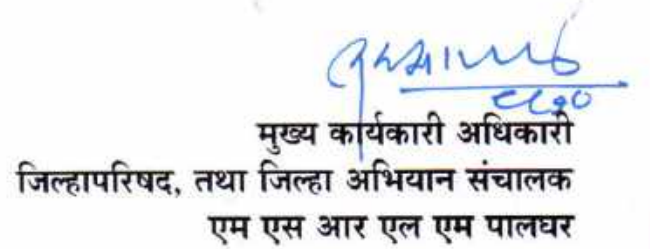 मुख्य कार्यकारी अधिकारी
जिल्हापरिषद, तथा जिल्हा अभियान संचालक
एम एस आर एल एम पालघर